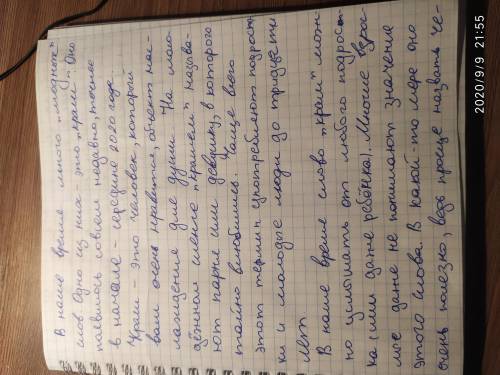 В наше время много "модных"
слов. Одно из них - это "краш". Оно
появилось совсем недавно, точнее
в начале - середине 2020 года.
"Краш - это человек, который
вам очень нравится, объект нас-
лаждения для души. На моло-
дёжном сленге "крашем" называ-
ют парня или девушку, в которого
тайно влюбились. Чаще всего
этот термин употребляют подрост-
ки и молодые люди до тридцати
лет.
В наше время слово "краш" мож-
но услышать от любого подрост-
ка (или даже ребёнка). Многие взрос-
лые даже не понимают значения
этого слова. В какой-то мере оно
очень полезно, ведь проще назвать че-
2020/9/9 21:55